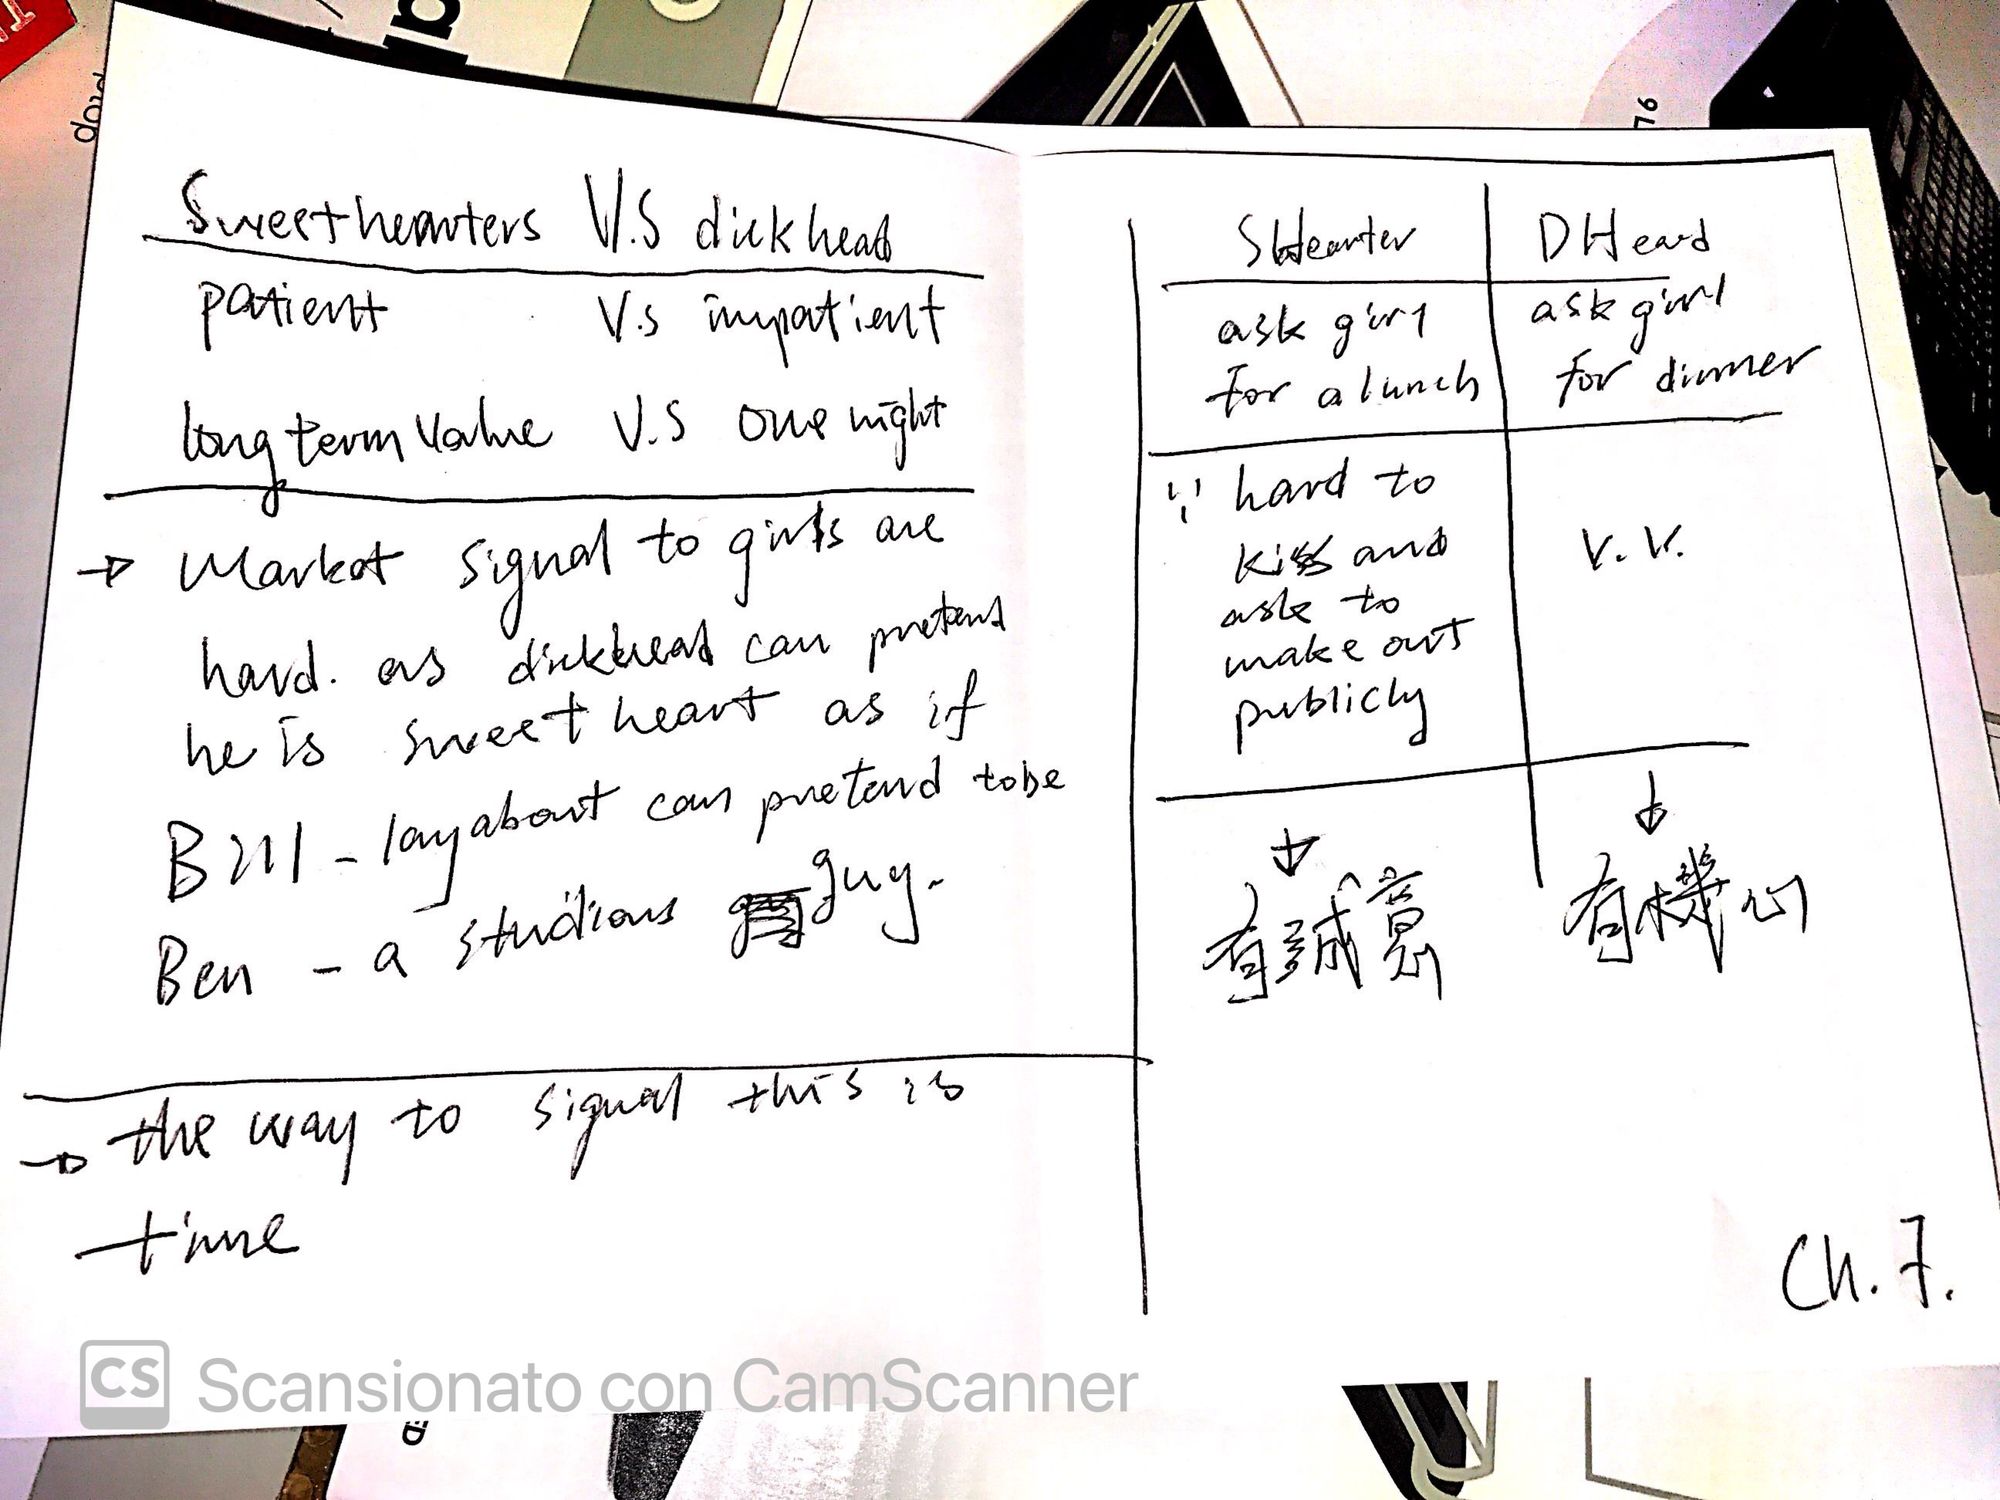 Sweethearters V.S dickhead
patient V.s impatient
long term value V.S one night
→ Market signal to girls are
hard. as dickhead can pretend
he is sweetheart as if
Bill - layabout can pretend to be
Ben - a studious guy.
→ the way to signal this is
time
SHearter DHeard
ask girl for a lunch
ask girl for dinner
∵ hard to
kiss and
ask to
make out
publicly
V.V.
↓ ↓
有誠意 有機心
Ch. 7.
CS Scansionato con CamScanner
76